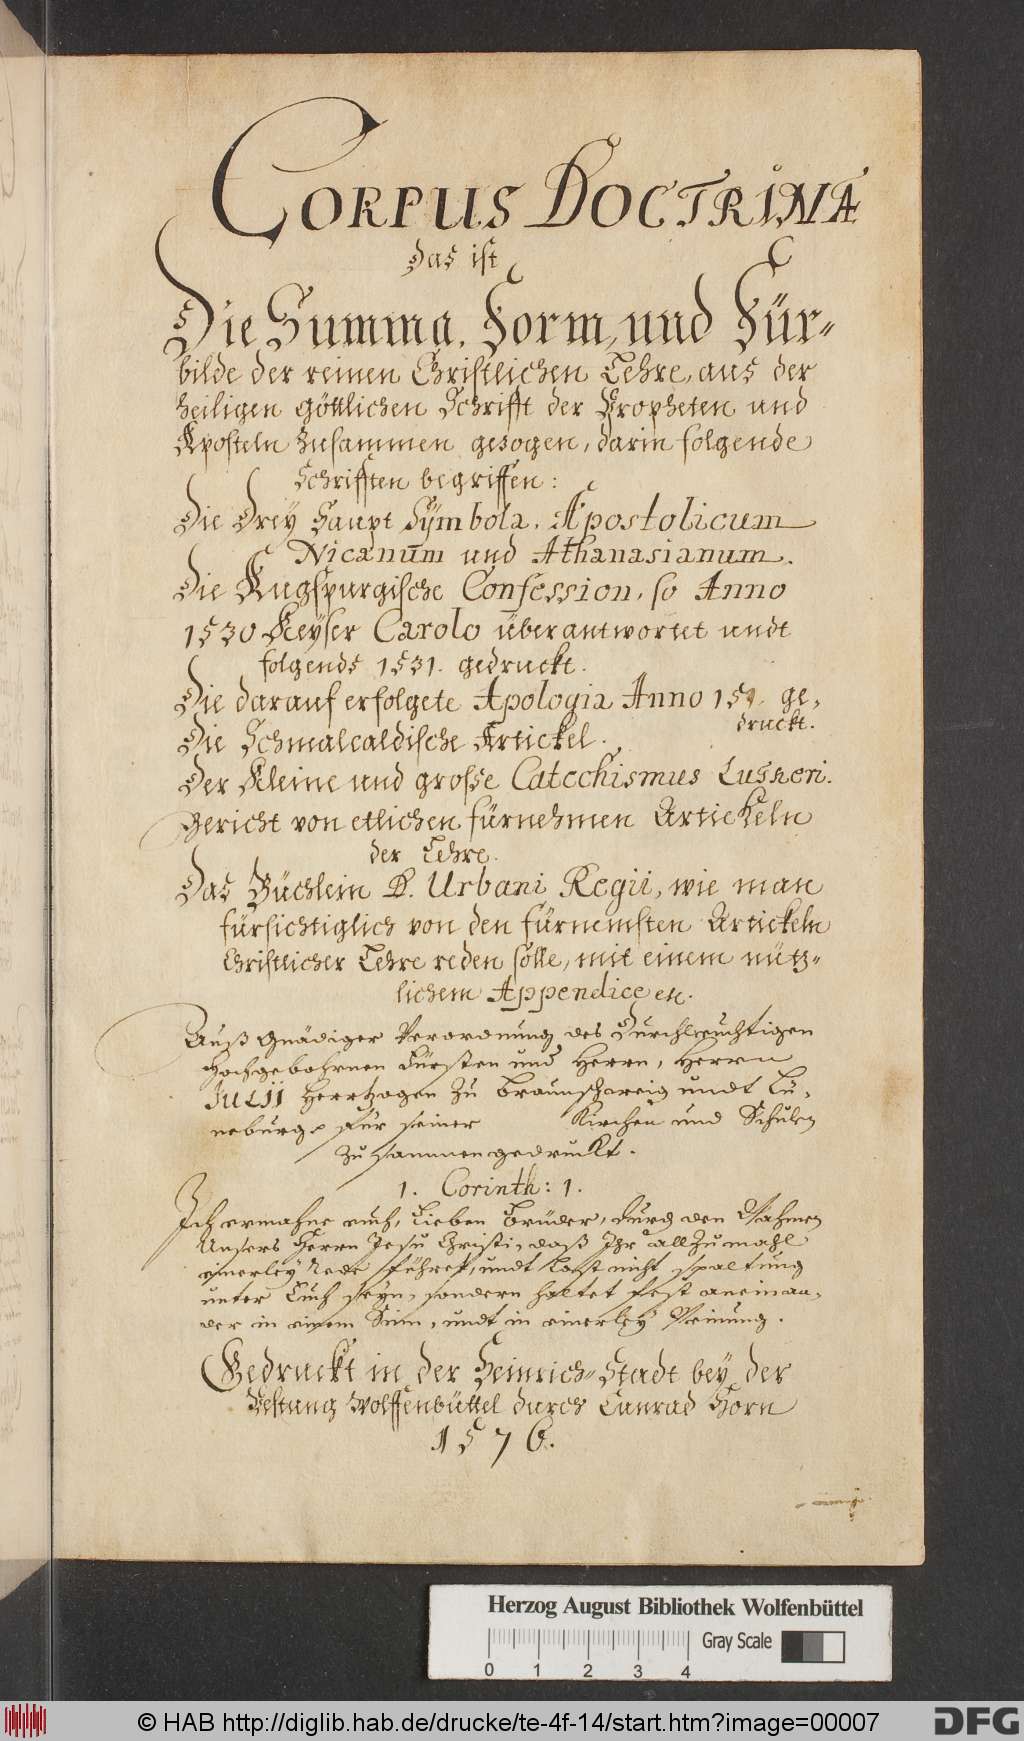 CORPUS DOCTRINÆ
das ist
Die Summa, Form, und Für-
bilde der reinen Christlichen Lehre, aus der
heiligen göttlichen Schrifft der Propheten und
Aposteln zusammen gezogen, darin folgende
Schrifften begriffen:
Die Drey Haupt Symbola, Apostolicum
Nicænum und Athanasianum.
Die Augspurgische Confession, so Anno
1530 Keyser Carolo überantwortet undt
folgends 1531. gedruckt.
Die darauf erfolgete Apologia Anno ge-
druckt.
Die Schmalcaldische Artickel.
Der Kleine und grosse Catechismus Lutheri.
Bericht von etlichen fürnehmen Artickeln
der Lehre.
Das Büchlein D. Urbani Regii, wie man
fürsichtiglich von den fürnemsten Artickeln
Christlicher Lehre reden solle, mit einem nütz-
lichem Appendice etc.
Auß Gnädiger Verordnung des Durchleuchtigen
Hochgebohrnen Fürsten und Herrn, Herrn
Julii Hertzogen zu Braunschweig undt Lü-
neburg für seiner Kirchen und Schulen
Zusammengedruckt.
1. Corinth: 1.
Ich ermahne euch, Lieben Brüder, durch den Nahmen
Unsers Herrn Jesu Christi, daß Ihr allzumahl
einerley Rede führet, undt Last nicht spaltung
unter Euch seyn, sondern haltet fest aneinan-
der in einem Sinn, undt in einerley Meinung.
Gedruckt in der Heinrich-Stadt bey der
Festung Wolffenbüttel durch Cunrad Horn
1576.
Herzog August Bibliothek Wolfenbüttel
Gray Scale
0 1 2 3 4
© HAB http://diglib.hab.de/drucke/te-4f-14/start.htm?image=00007
DFG